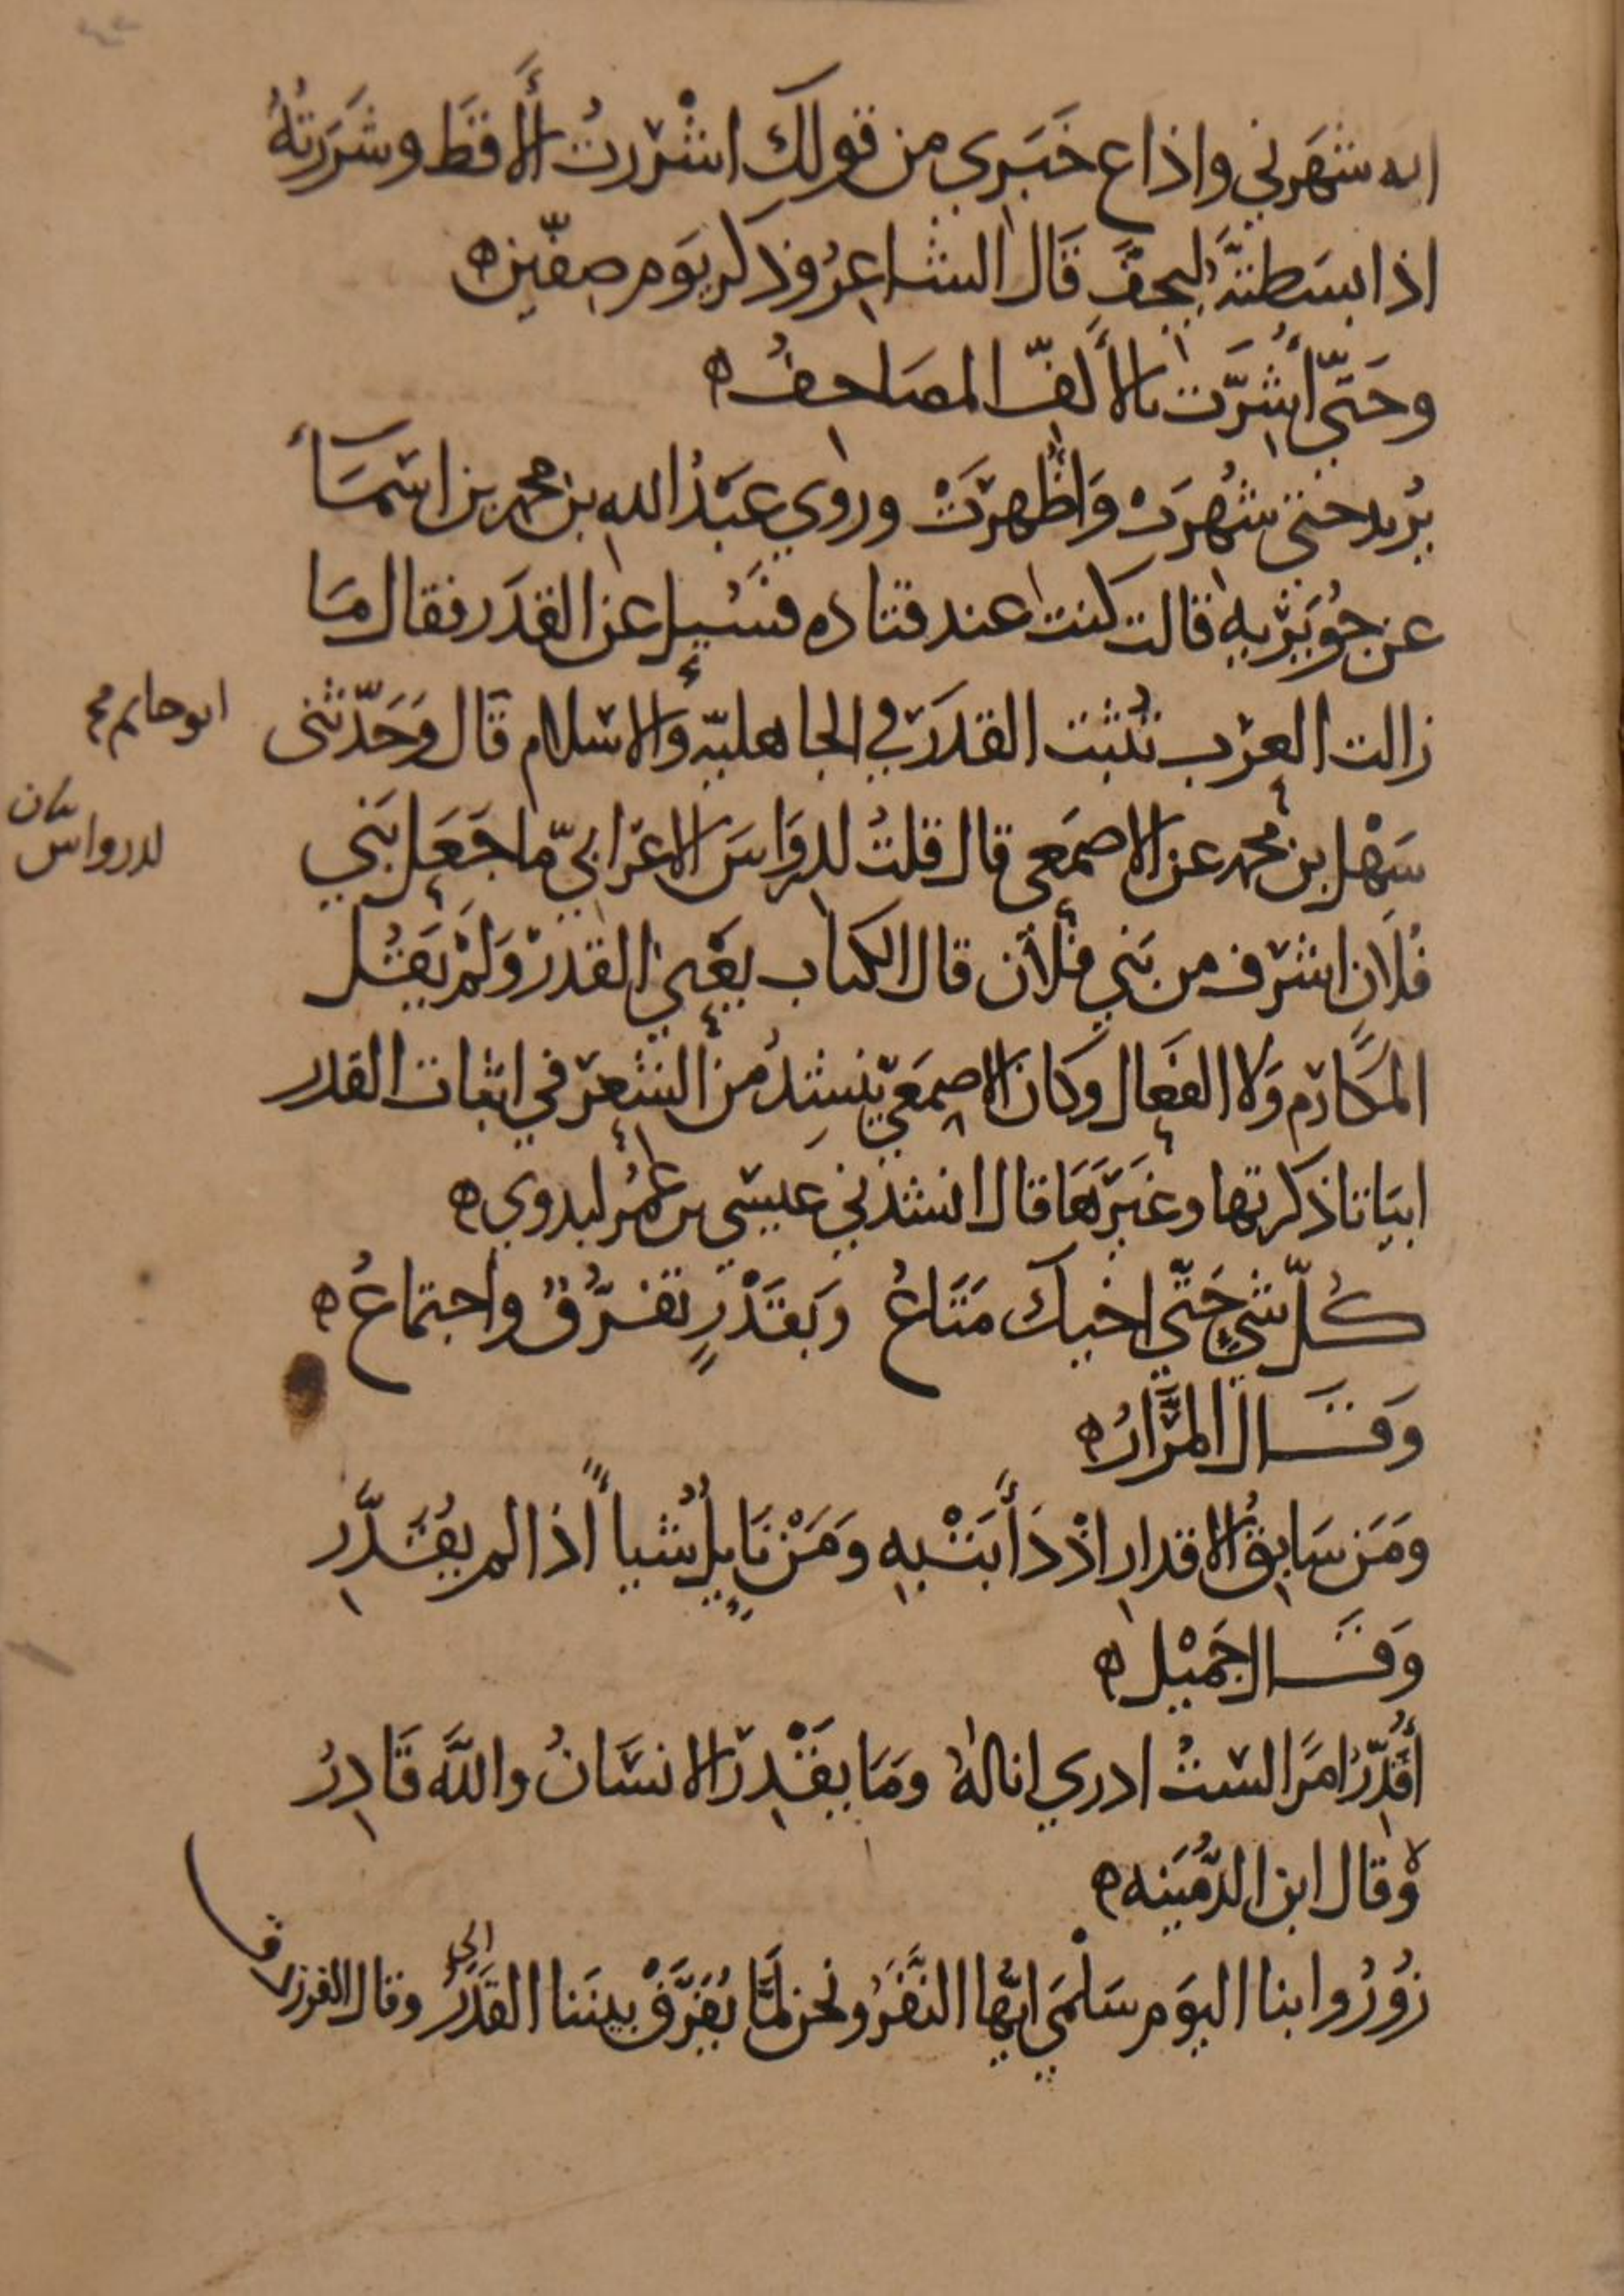 انه شَهَرني واذاع خَبَري من قولك اشْررتُ الأَقط وشَرَرتُهُ
اذا بسَطتَهُ ليجفَّ قَال الشاعِرُ وذكر يَوم صِفّين ه
وحَتّى أُشِرَّت بالأَكفّ المصَاحفُ ه
يُريد حتى شُهِرَتْ وَأُظهِرَتْ وروي عَبْدُ الله بن محمد بن اسْمَآء
عن جُوَيْرْيه قالت كنت عند قتاده فسُيِل عن القدَر فقال مَا
زالت العرب تُثبت القدَر في الجاهليّه والاسلام قَال وَحَدّثنى
ابو حاتم
سَهْل بن محمد عن الاصمَعي قال قلتُ لدِرْوَاسَ الاعرَابيّ ما جَعَل بَني
لدرواس كان
فُلَانٍ اشرف من بَني فُلَان قال الكتاب يعْني القدرْ وَلَمْ يَقُل
المكَارِم وَلا الفَعَال وكان الاصمَعيّ ينشِدُ من الشِعرَ في اثبات القدر
ابيَاتا ذكرتها وغَيرَهَا قال انشدني عيسَى بن عُمرُ لبدوي ه
كُلّ شيءٍ حَتّى اخيك مَتَاعُ وَبقَدْرٍ تفَرُّقٌ واجتماعُ ه
وَقَال المَرَّارُ ه
وَمَن سَابِقُ الاقدارِ اذْ دَأَبَتْ بِهِ وَمَنْ نَايِلٌ شياً اذا لم يُقَدَّرِ
وَقَال جَمِيْل ه
أُقَدِّرُ امرًا لستُ ادري اناله وَمَا يَقْدِرُ الانسَانُ واللَّه قَادِرُ
وقال ابن الدُّمَينه ه
زُوْرُوا بنا اليَوم سَلْمَى ايُّها النَّفَرُ ونحن لمّا يُفَرِّقْ بيننا القَدَرُ وقال الفرزدق